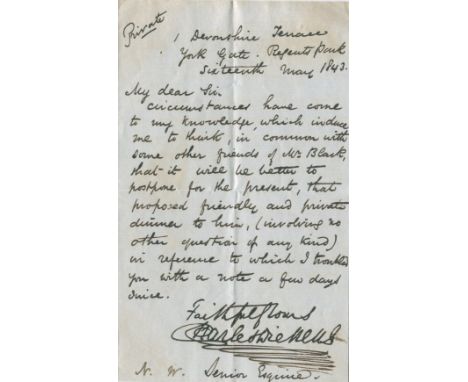 Private
1 Devonshire Terrace
York Gate. Regents Park
Sixteenth May 1843.
My dear Sir
circumstances have come
to my knowledge, which induce
me to think, in common with
some other friends of Mr Black,
that it will be better to
postpone for the present, that
proposed friendly and private
dinner to him, (involving no
other question of any kind)
in reference to which I troubled
you with a note a few days
since.
Faithfully Yours
Charles Dickens
N. W. Senior Esquire.